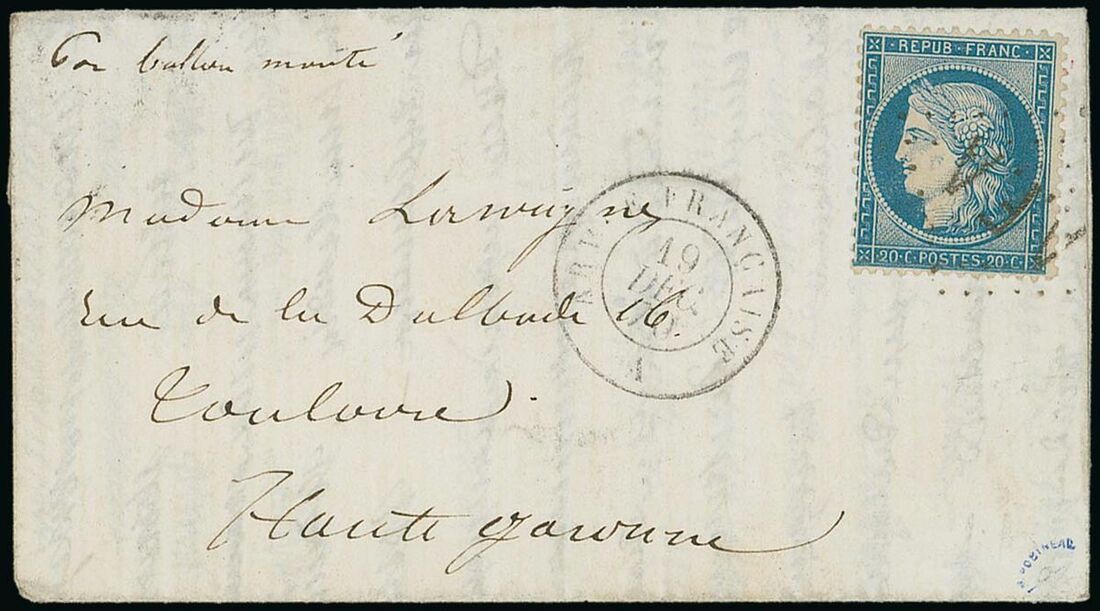 Par ballon monté
REPUB·FRANC·
20·C·POSTES·20·C·
Madame
ARM FRANÇAISE
19
DEC
70
rue de la Dalbade 16
Toulouse
Haute garonne